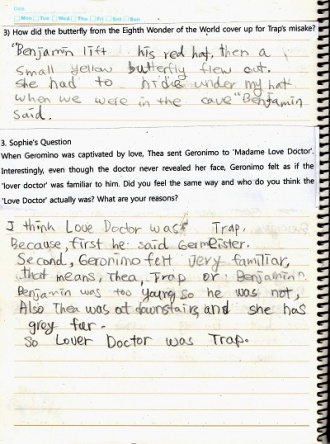 Date
Mon Tue Wed Thu Fri Sat Sun
3) How did the butterfly from the Eighth Wonder of the World cover up for Trap's misake?
"Benjamin lift his red hat, then a
small yellow butterfly flew out.
she had to hide under my hat
when we were in the cave" Benjamin
said.
3. Sophie's Question
When Geromino was captivated by love, Thea sent Geronimo to 'Madame Love Doctor'.
Interestingly, even though the doctor never revealed her face, Geronimo felt as if the
'lover doctor' was familiar to him. Did you feel the same way and who do you think the
'Love Doctor' actually was? What are your reasons?
I think Love Doctor was Trap.
Because, first he said Germeister.
Second, Geronimo felt very familiar,
that means, Thea, Trap or Benjamin.
Benjamin was too young so he was not,
Also Thea was at downstairs, and she has
grey fur.
So Lover Doctor was Trap.